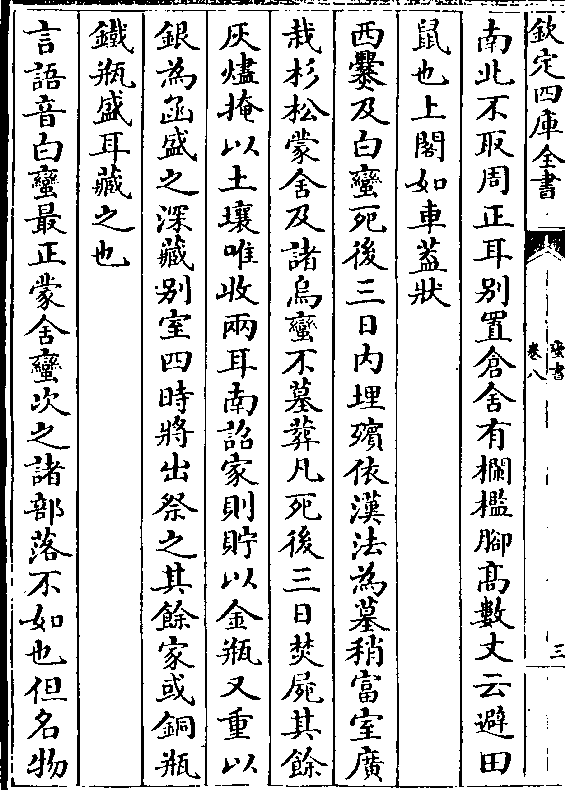 欽定四庫全書
蠻書
卷八
三
南北不取周正耳别置倉舍有欄檻腳髙數丈云避田
鼠也上閣如車葢狀
西爨及白蠻死後三日内埋殯依漢法為墓稍富室廣
栽杉松蒙舍及諸烏蠻不墓葬凡死後三日焚屍其餘
灰燼掩以土壤唯收兩耳南詔家則貯以金瓶又重以
銀為函盛之深藏别室四時將出祭之其餘家或銅瓶
鐵瓶盛耳藏之也
言語音白蠻最正蒙舍蠻次之諸部落不如也但名物